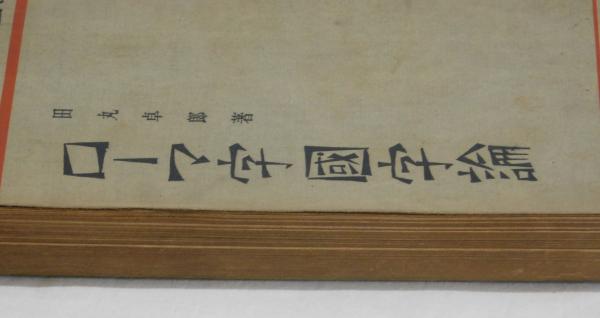 田丸卓郎著
ローマ字國字論